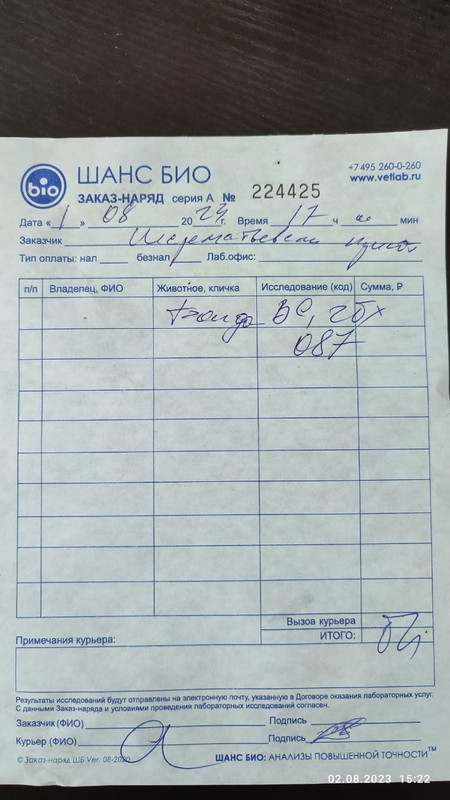 bio
ШАНС БИО
+7 495 260-0-260
www.vetlab.ru
ЗАКАЗ-НАРЯД серия А № 224425
Дата «1» 08 2023 г. Время 17 ч оо мин
Заказчик
Тип оплаты: нал безнал Лаб.офис:
п/п Владелец, ФИО Животное, кличка Исследование (код) Сумма, ₽
087
Вызов курьера
ИТОГО:
Примечания курьера:
Результаты исследований будут отправлены на электронную почту, указанную в Договоре оказания лабораторных услуг.
С данными Заказ-наряда и условиями проведения лабораторных исследований согласен.
Заказчик (ФИО) Подпись
Курьер (ФИО) Подпись
© Заказ-наряд ШБ Ver. 08-2020 ШАНС БИО: АНАЛИЗЫ ПОВЫШЕННОЙ ТОЧНОСТИ™
02.08.2023 15:22